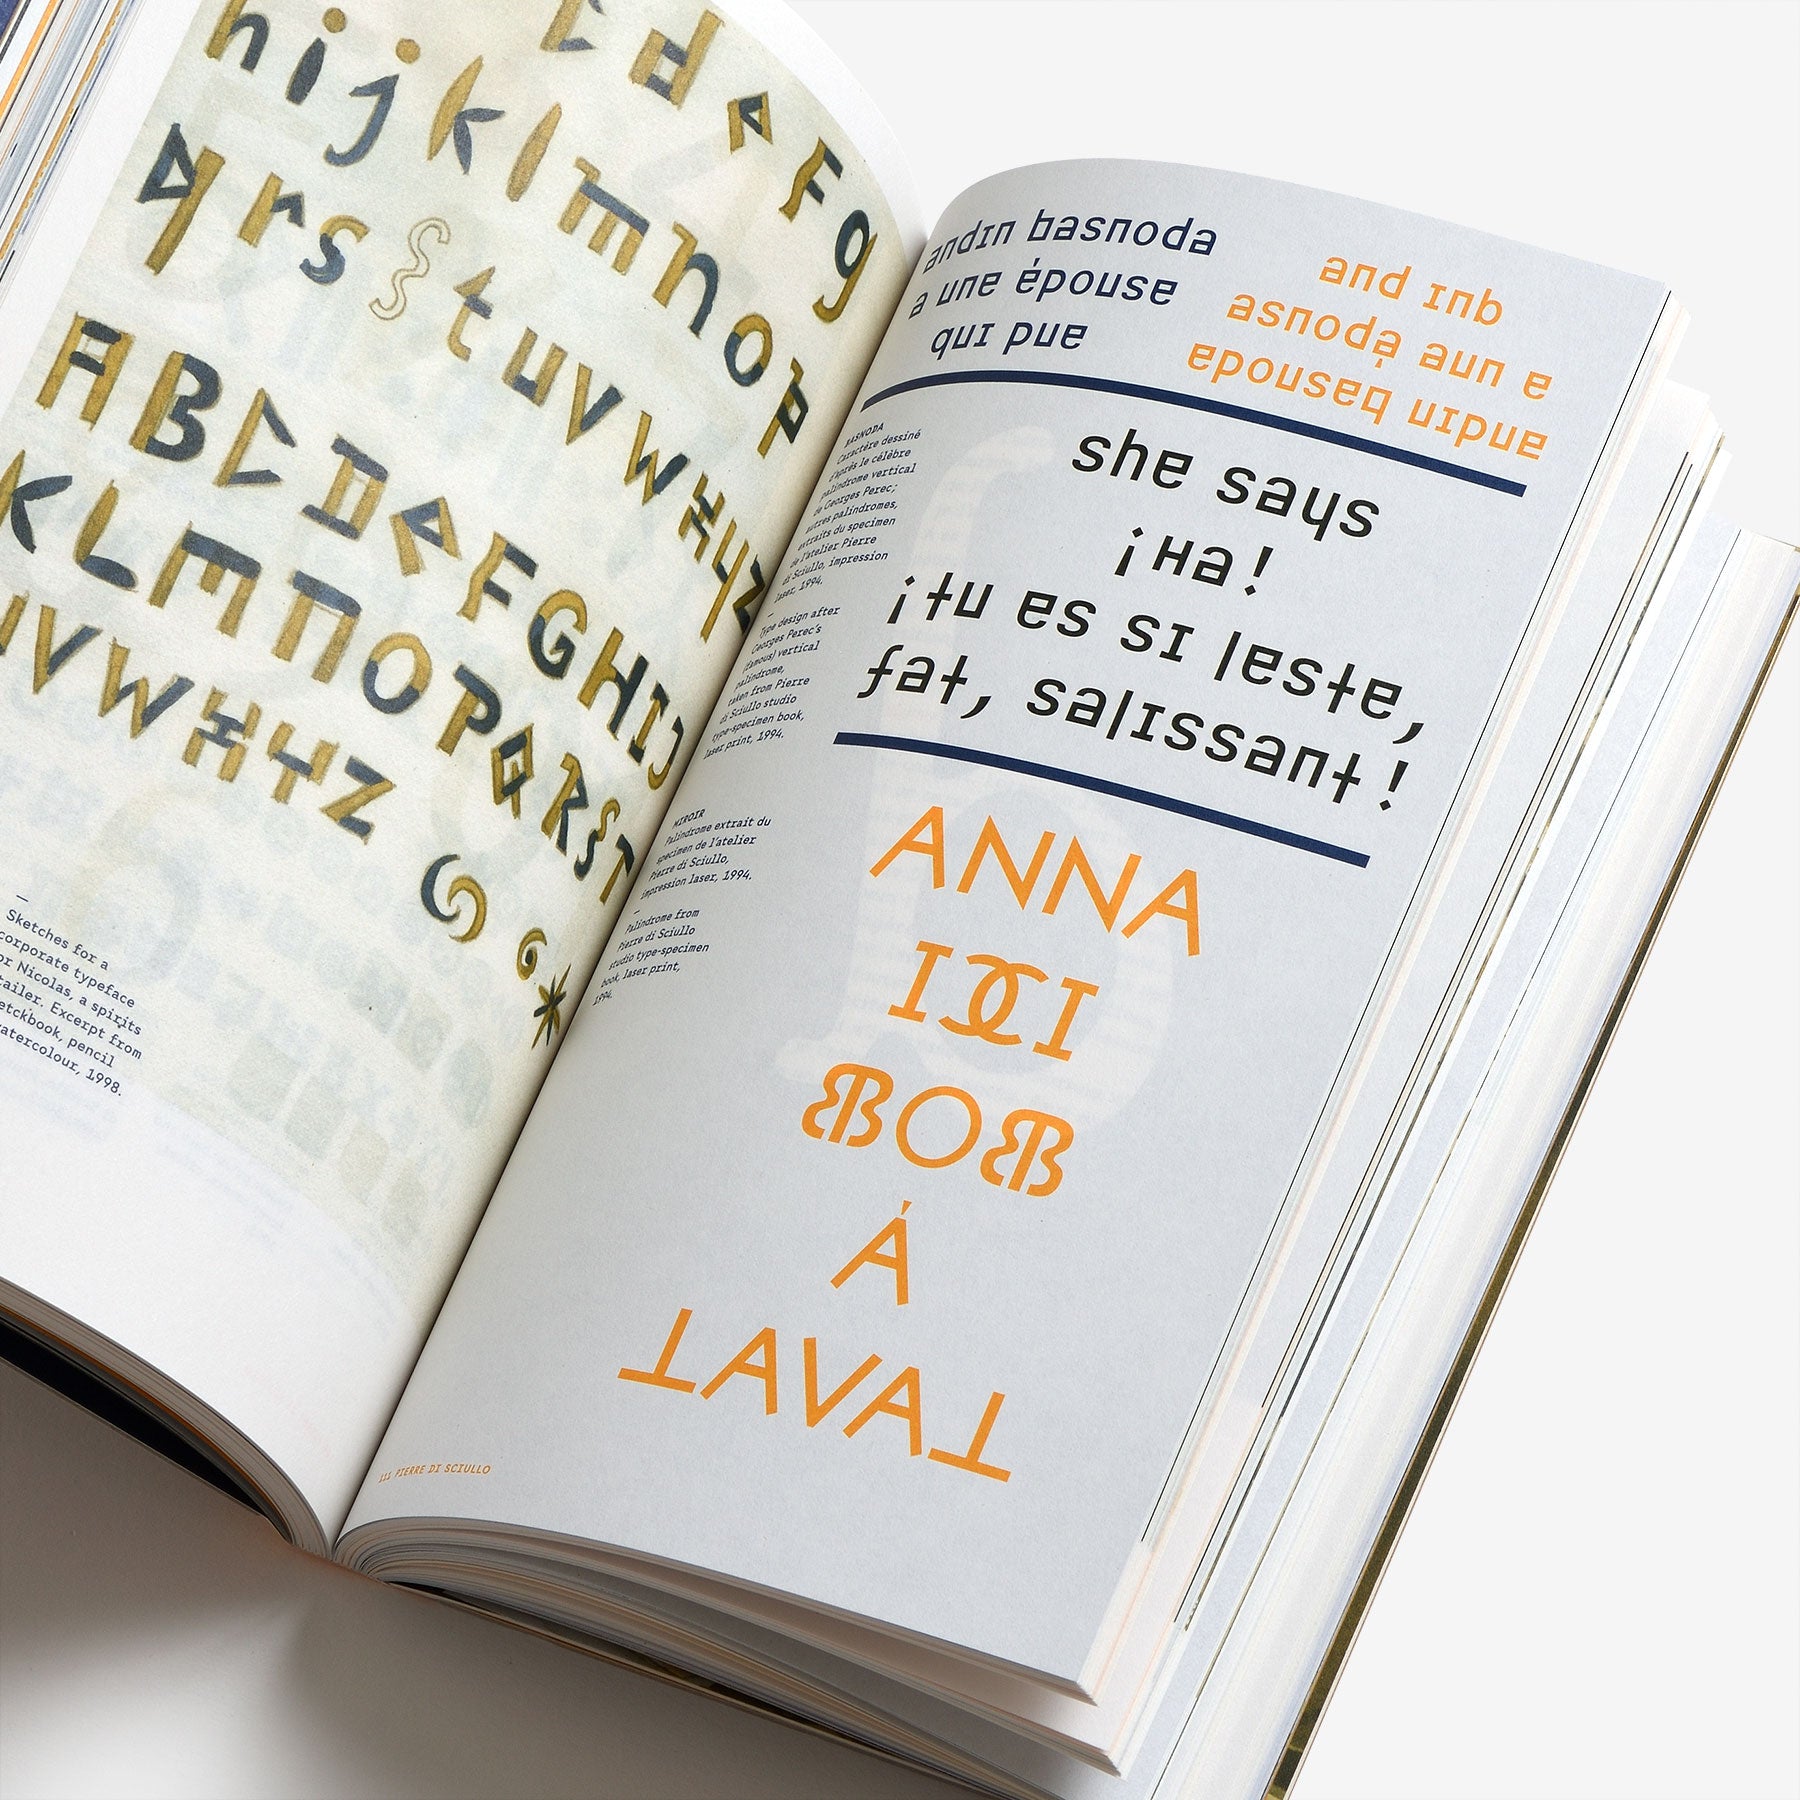 c d e F g
h i j k l m n o p
q r s s t u v w x y z
A B C D E F G H I J
K L M N O P Q R S T
U V W X Y Z
—
Sketches for a
corporate typeface
for Nicolas, a spirits
retailer. Excerpt from
sketckbook, pencil
watercolour, 1998.
andin basnoda
a une épouse
qui pue
and inb
asnoda aun a
epouseq uip
BASNODA
Caractère dessiné
d'après le célèbre
palindrome vertical
de Georges Perec;
autres palindromes,
extraits du specimen
de l'atelier Pierre
di Sciullo, impression
laser, 1994.
—
Type design after
Georges Perec's
(famous) vertical
palindrome,
taken from Pierre
di Sciullo studio
type-specimen book,
laser print, 1994.
she says
¡Ha!
¡tu es si leste,
fat, salissant!
MIROIR
Palindrome extrait du
specimen de l'atelier
Pierre di Sciullo,
impression laser, 1994.
—
Palindrome from
Pierre di Sciullo
studio type-specimen
book, laser print,
1994.
ANNA
ICI
BOB
À
TAVAT
111 PIERRE DI SCIULLO